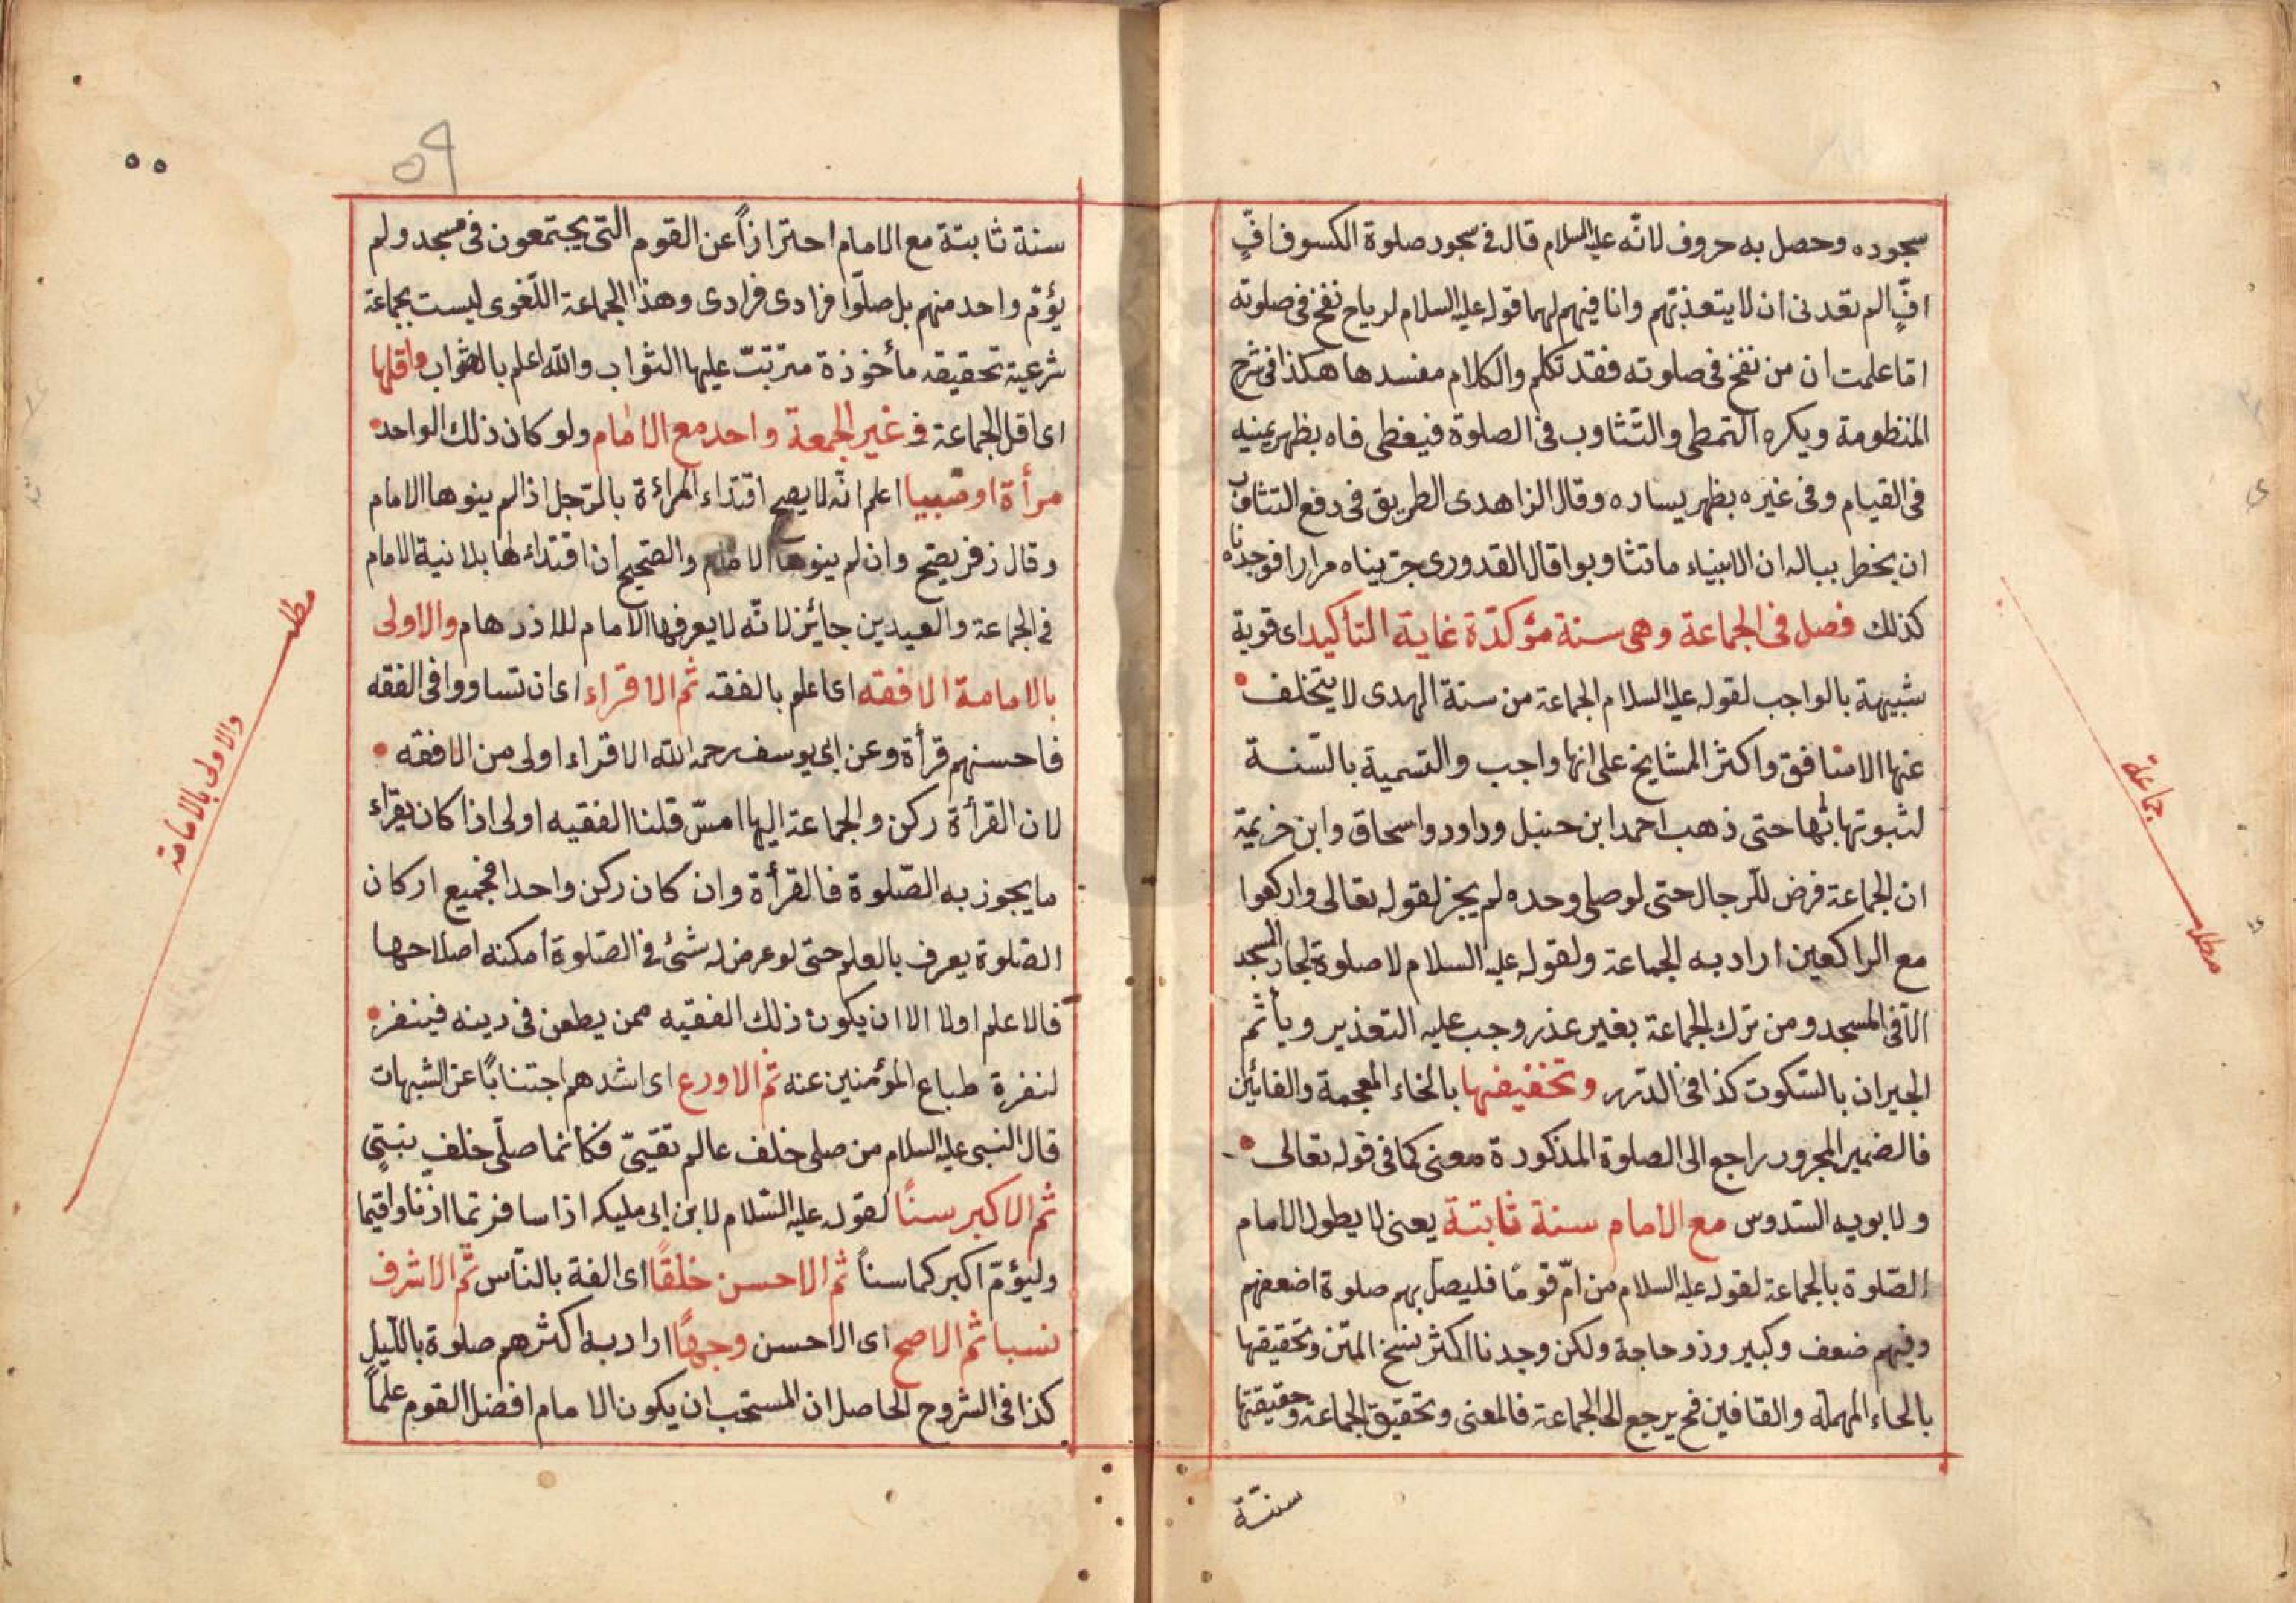 سجوده وحصل به حروف لانّه عليه السلام قال فى سجود صلوة الكسوف افٍّ
افٍّ الم تعدنى ان لا يتعذبهم وانا فيهم لهما قوله عليه السلام لرباح نفخ فى صلوته
اما علمت ان من نفخ فى صلوته فقد تكلم والكلام مفسدها هكذا فى شرح
المنظومة ويكره التمطى والتّثاوب فى الصلوة فيغطى فاه بظهر يمينه
فى القيام وفى غيره بظهر يساره وقال الزاهدى الطريق فى دفع التثاوب
ان يخطر بباله ان الانبياء ما تثاوبوا قال القدورى جربناه مرارا فوجدناه
كذلك فصل فى الجماعة وهى سنة مؤكدّة غاية التأكيد اى قوية
شبيهة بالواجب لقوله عليه السلام الجماعة من سنة الهدى لا يتخلف
عنها الا منافق واكثر المشايخ على انها واجب والتسمية بالسّنة
لثبوتها بها حتى ذهب احمد ابن حنبل وداود واسحاق وابن خزيمة
ان الجماعة فرض للرجال حتى لو صلى وحده لم يجز لقوله تعالى واركعوا
مع الراكعين اراد به الجماعة ولقوله عليه السلام لا صلوة لجار المسجد
الّا فى المسجد ومن ترك الجماعة بغير عذر وجب عليه التعذير ويأثم
الجيران بالسّكوت كذا فى الدّرر وتخفيفها بالخاء المعجمة والفائين
فالضمير المجرور راجع الى الصلوة المذكورة معنى كما فى قوله تعالى
ولابويه السّدوس مع الامام سنة ثابتة يعنى لا يطول الامام
الصّلوة بالجماعة لقوله عليه السلام من امّ قومًا فليصل بهم صلوة اضعفهم
وفيهم ضعف وكبير وذو حاجة ولكن وجدنا اكثر نسخ المتن وتحقيقها
بالحاء المهملة والقافين فح يرجع الى الجماعة فالمعنى وتحقيق الجماعة وحقيقتها
سنّة
مطلب
جماعة
٥٥
٥٩
سنة ثابتة مع الامام احترازاً عن القوم التى يجتمعون فى مسجد ولم
يؤمّ واحد منهم بل صلّوا فرادى فرادى وهذا الجماعة اللّغوى ليست بجماعة
شرعية تحقيقه مأخوذة مترتبّ عليها الثواب والله اعلم بالصّواب واقلها
اى اقل الجماعة فى غير الجمعة واحد مع الامام ولو كان ذلك الواحد
مرأة او صبيا اعلم انّه لا يصح اقتداء المراءة بالرّجل اذا لم ينوها الامام
وقال زفر يصّح وان لم ينوها الامام والصّحيح ان اقتداءها بلا نية الامام
فى الجماعة والعيدين جائز لانّه لا يعرفها الامام للاذدهام والاولى
بالامامة الافقه اى اعلم بالفقه ثم الاقراء اى ان تساووا فى الفقه
فاحسنهم قرأة وعن ابى يوسف رحمه الله الاقراء اولى من الافقه
لان القرأة ركن والجماعة اليها امسّ قلنا الفقيه اولى اذا كان يقراء
ما يجوز به الصّلوة فالقرأة وان كان ركن واحد فجميع اركان
الصّلوة يعرف بالعلم حتى لو عرض له شئ فى الصّلوة امكنه اصلاحها
فالاعلم اولا الا ان يكون ذلك الفقيه ممن يطعن فى دينه فينفر
لنفرة طباع المؤمنين عنه ثم الاورع اى اشدهم اجتنابًا عن الشبهات
قال النبى عليه السلام من صلى خلف عالم تقيىّ فكانما صلّى خلف نبتى
ثم الاكبر سنًا لقوله عليه السّلام لابن ابى مليكه اذا سافرتما اذنا واقيما
وليؤمّ اكبركما سناً ثم الاحسن خلقًا اى الفة بالنّاس ثمّ الاشرف
نسبا ثم الاصح اى الاحسن وجهًا اراد به اكثرهم صلوة بالليل
كذا فى الشروح الحاصل ان المستحب ان يكون الامام افضل القوم علماً
مطلب
والاولى بالامامة